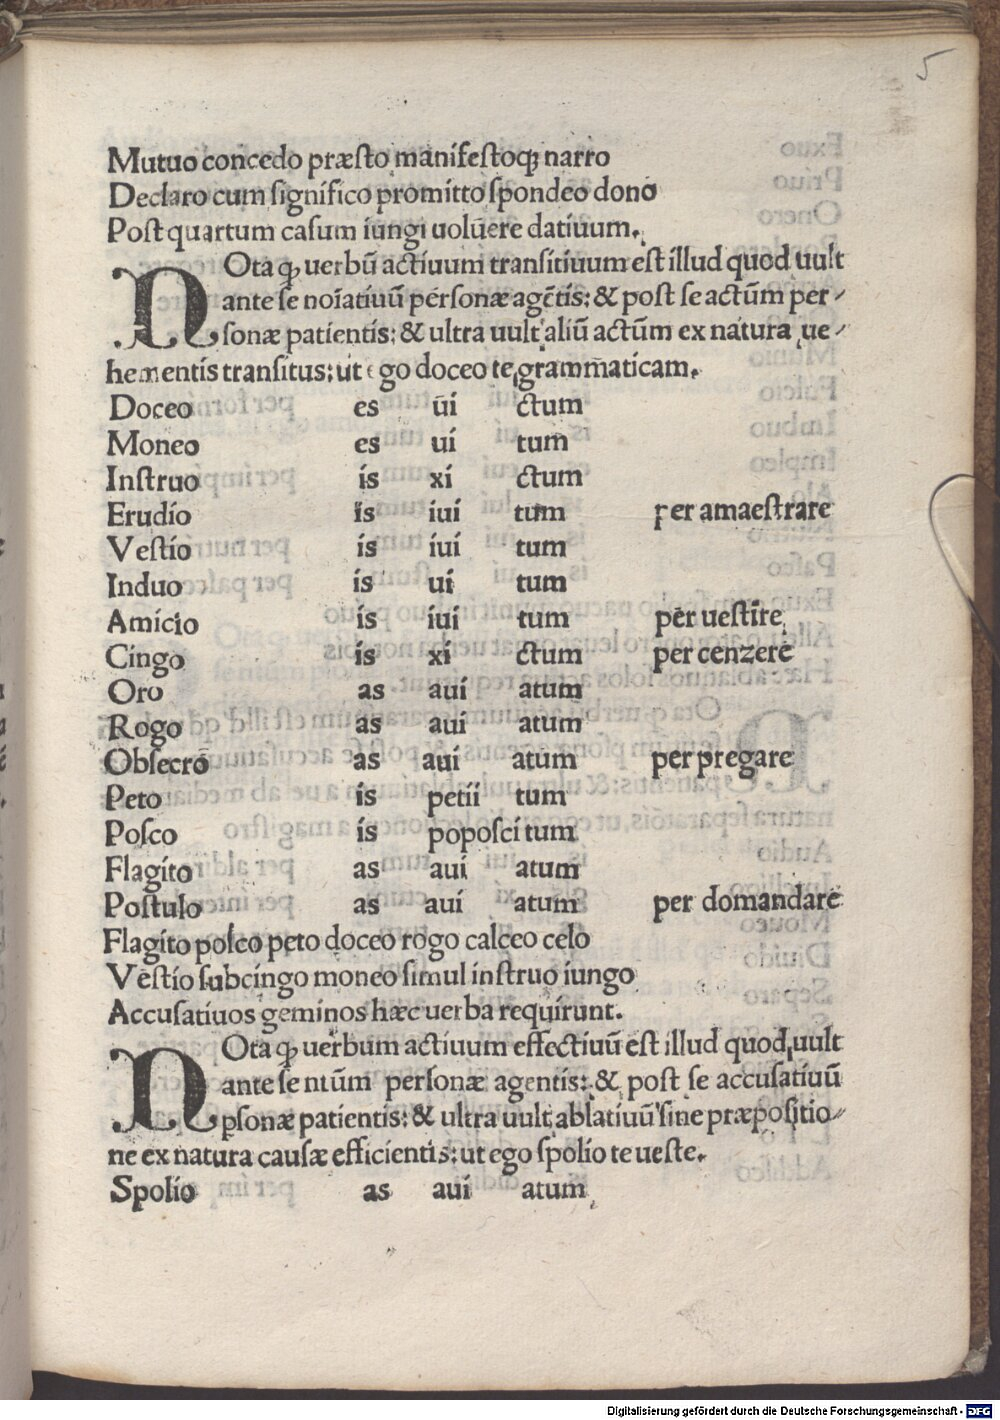 5
Mutuo concedo præsto manifestoqꝫ narro
Declaro cum significo promitto spondeo dono
Post quartum casum iungi uolūere datiuum.
NOta ꝙ uerbū actiuum transitiuum est illud quod uult
ante se noīatiuū personæ agētis: & post se actūm per-
sonæ patientis: & ultra uult aliū actūm ex natura ue-
hementis transitus: ut ego doceo te grammaticam.
Doceo es ui ctum
Moneo es ui tum
Instruo is xi ctum
Erudio is iui tum per amaestrare
Vestio is iui tum
Induo is ui tum
Amicio is iui tum per uestire
Cingo is xi ctum per cenzere
Oro as aui atum
Rogo as aui atum
Obsecro as aui atum per pregare
Peto is petii tum
Posco is poposci tum
Flagito as aui atum
Postulo as aui atum per domandare
Flagito posco peto doceo rogo calceo celo
Vestio subcingo moneo simul instruo iungo
Accusatiuos geminos hæc uerba requirunt.
NOta ꝙ uerbum actiuum effectiuū est illud quod uult
ante se ntūm personæ agentis: & post se accusatiuū
ꝑsonæ patientis: & ultra uult ablatiuū sine præpositio-
ne ex natura causæ efficientis: ut ego spolio te ueste.
Spolio as aui atum
Digitalisierung gefördert durch die Deutsche Forschungsgemeinschaft - DFG